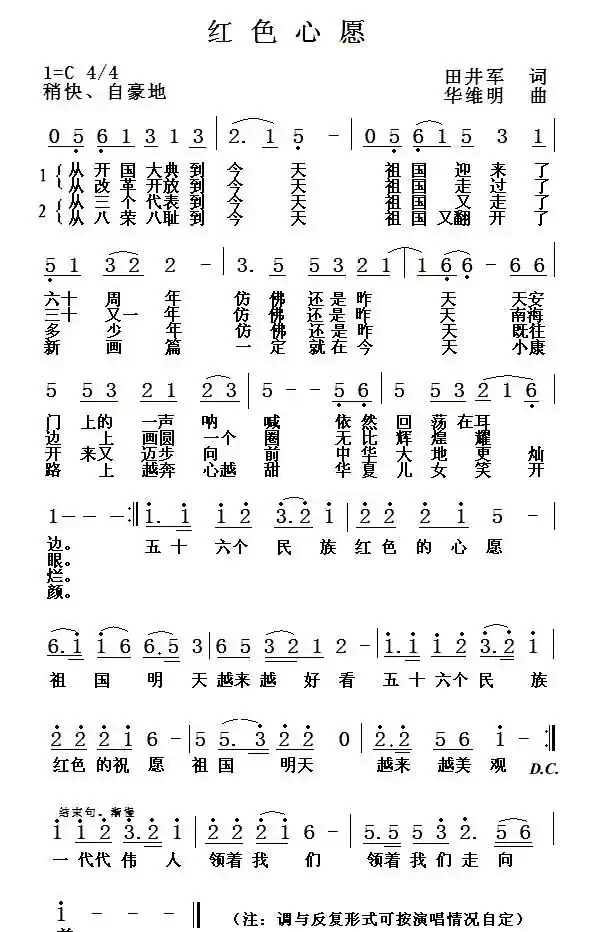 红色心愿
1=C 4/4
田井军 词
稍快、自豪地
华维明 曲
0 5 6 1 3 1 3 | 2. 1 5 - | 0 5 6 1 5 3 1 |
1 从开国大典到今天 祖国迎来了
从改革开放到今天 祖国走过了
2 从三个代表到今天 祖国又走了
从八荣八耻到今天 祖国又翻开了
5 1 3 2 2 - | 3. 5 5 3 2 1 | 1 6 6 - 6 5 |
六十周年 仿佛还是昨天 天安
三十又一年 仿佛还是昨天 南海
多少年 仿佛还是昨天 既往
新画篇 一定就在今天 小康
5 5 3 2 1 2 3 | 5 - - 5 6 | 5 5 3 2 1 6 |
门上的一声呐喊 依然回荡在耳
边上画圆一个圈 无比辉煌耀
开来又迈步向前 中华大地更灿
路上越奔心越甜 华夏儿女笑开
1 - - - :| 1. 1 1 2 3. 2 1 | 2 2 2 1 5 - |
边。 五十六个民族红色的心愿
眼。
烂。
颜。
6. 1 1 6 6. 5 3 | 6 5 3 2 1 2 - | 1. 1 1 2 3. 2 1 |
祖国明天越来越好看五十六个民族
2 2 2 1 6 - | 5 5. 3 2 2 0 | 2. 2 5 6 1 - :|
红色的祝愿祖国明天 越来越美观 D.C.
结束句。渐慢
1 1 2 3. 2 1 | 2 2 2 1 6 - | 5. 5 5 3 2. 5 6 |
一代代伟人 领着我们 领着我们走向
1 - - - ‖ (注：调与反复形式可按演唱情况自定)